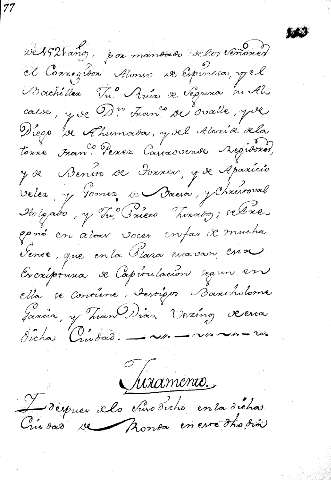 77
de 1521 años, por mandado de los Señores
el Corregidor Alonso de Espinosa, y el
Bachiller Juº Ruiz de Segura su Al
calde, y de Dn Franco de Ovalle, y de
Diego de Ahumada, y de Alonso de la
torre Franco Perez Regidores,
y de Benito de Torres, y de Aparicio
velez, y Gomez de Baeza, y Christoval
Holgado, y Juº Prieto Jurados; se Pre
gonó en altas voces en faz de mucha
Gente, que en la Plaza estavan, esta
Escriptura de Capitulacion segun en
ella se contiene, testigos Bartholome
Garcia, y Juan Diaz Vezinos de esta
dicha Ciudad.
Juramento.
I despues de lo Susodicho en la dicha
Ciudad de Ronda en este dho dia